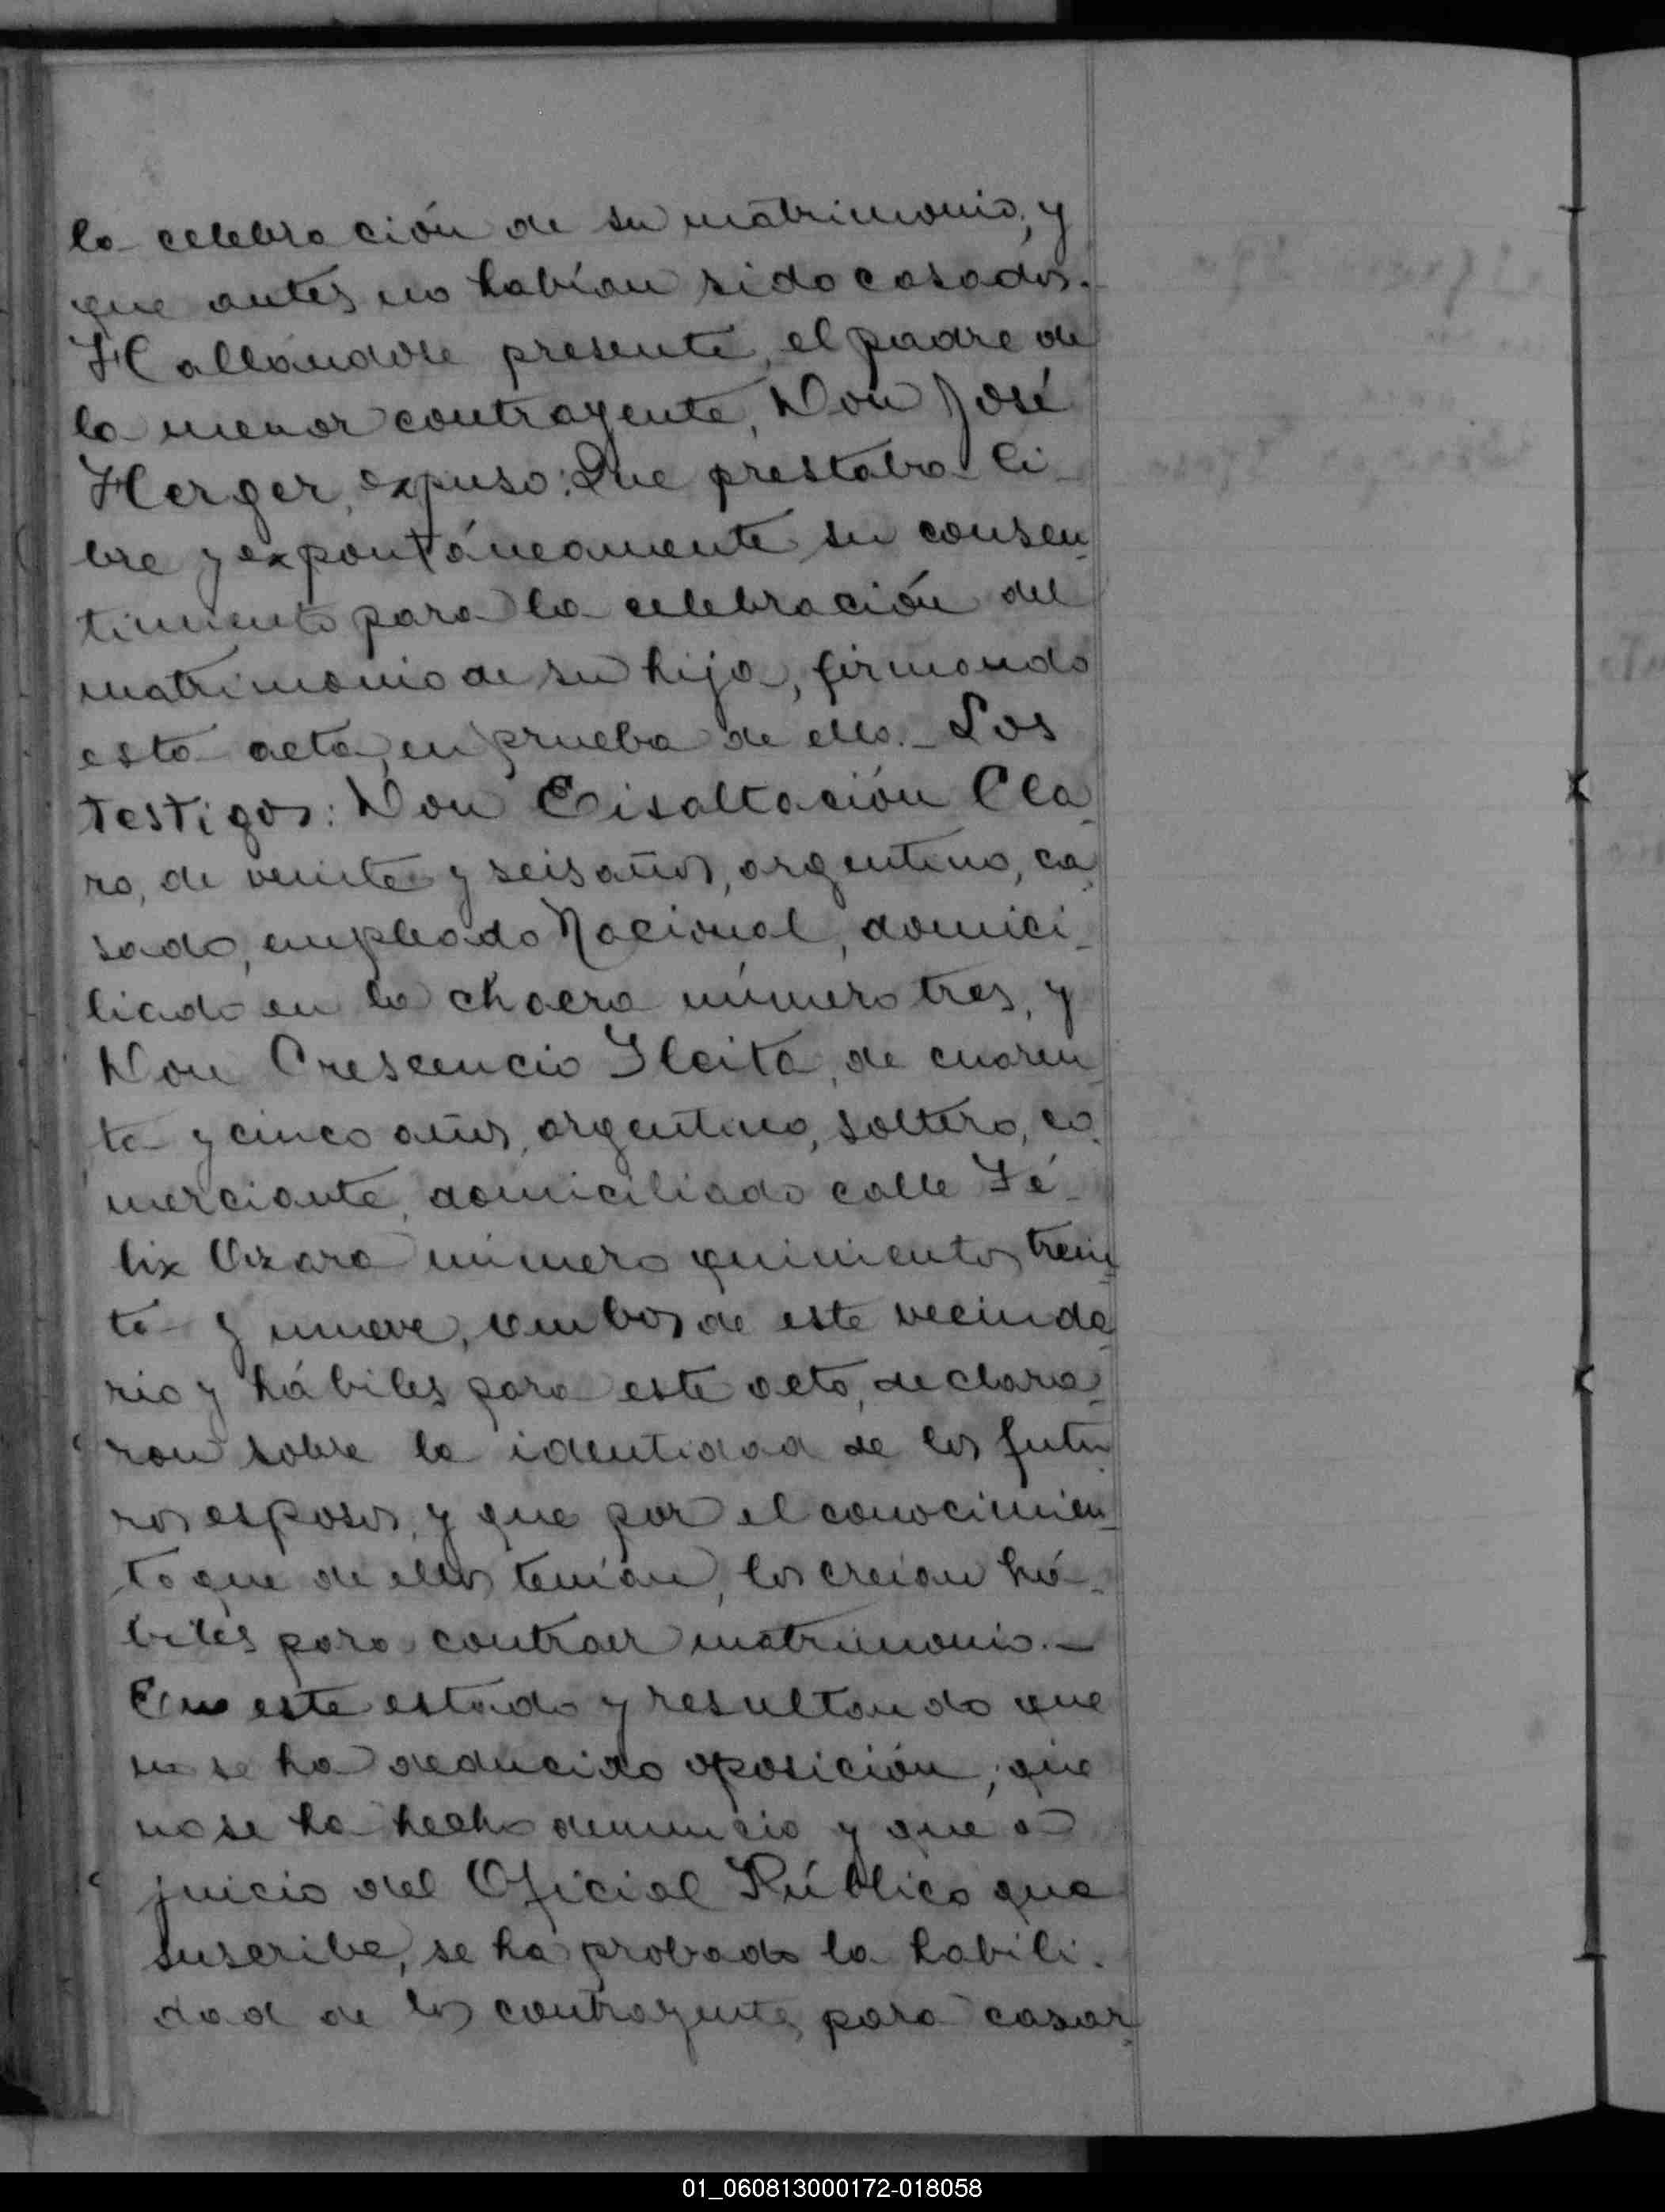 la celebración de su matrimonio, y
que antes no habían sido casados.
Hallándose presente, el padre de
la menor contrayente, Don José
Herger, expuso: Que prestaba li-
bre y expontáneamente su consen-
timiento para la celebración del
matrimonio de su hija, firmando
esta acta, en prueba de ello. - Los
testigos: Don Eisaltación Cla-
ro, de veinte y seis años, argentino, ca-
sado, empleado Nacional, domici-
liado en la chacra número tres, y
Don Crescencio Yleita, de cuaren-
ta y cinco años, argentino, soltero, co-
merciante, domiciliado calle Fé-
lix Azara número quinientos trein-
ta y nueve, ambos de este vecinda-
rio y hábiles para este acto, declara-
ron sobre la identidad de los futu-
ros esposos, y que por el conocimien-
to que de ellos tenían, los creían há-
biles para contraer matrimonio. -
En este estado y resultando que
no se ha deducido oposición, que
no se ha hecho denuncia y que a
juicio del Oficial Público que
suscribe, se ha probado la habili-
dad de los contrayentes para casar-
01_060813000172-018058